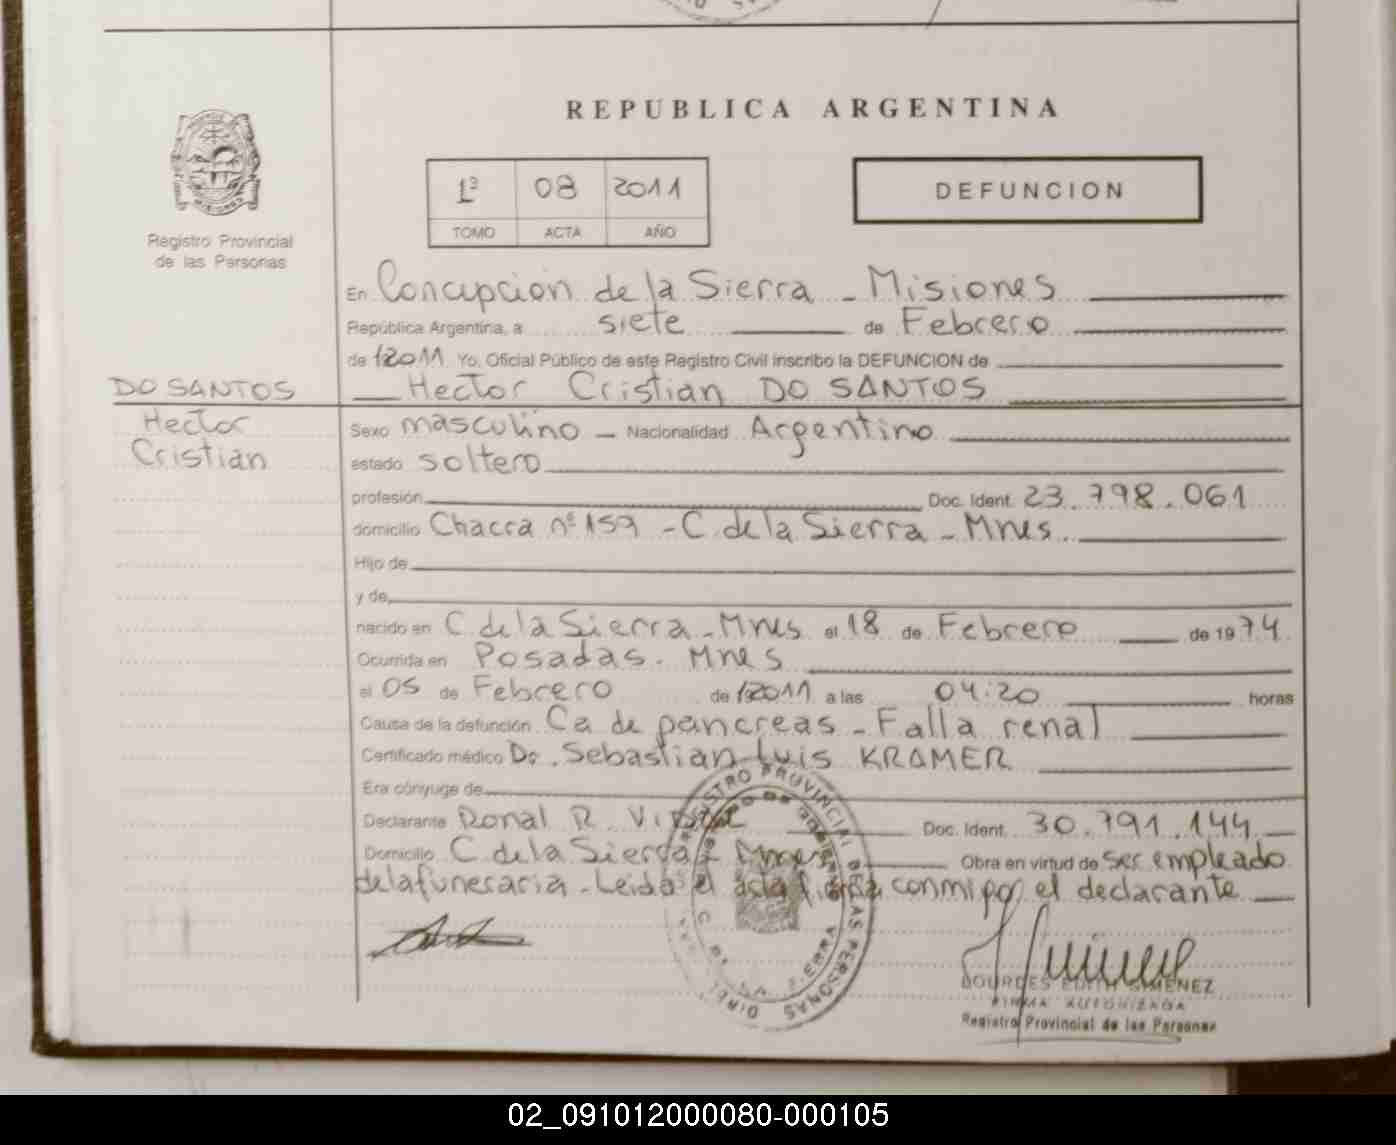 REPUBLICA ARGENTINA
1º 08 2011
TOMO ACTA AÑO
DEFUNCION
Registro Provincial
de las Personas
En Concepcion de la Sierra - Misiones
República Argentina, a siete de Febrero
de 2011 Yo, Oficial Público de este Registro Civil inscribo la DEFUNCION de
DO SANTOS
Hector
Cristian
Hector Cristian DO SANTOS
Sexo masculino - Nacionalidad Argentino
estado soltero
profesión Doc. Ident. 23.798.061
domicilio Chacra nº 159 - C. de la Sierra - Mnes.
Hijo de
y de
nacido en C. de la Sierra - Mnes el 18 de Febrero de 1974
Ocurrida en Posadas. Mnes
el 05 de Febrero de 2011 a las 04:20 horas
Causa de la defunción Ca de pancreas - Falla renal
Certificado médico Dr. Sebastian Luis KRAMER
Era cónyuge de
Declarante Ronal R. Doc. Ident. 30.791.144
Domicilio C. de la Sierra - Mnes Obra en virtud de ser empleado
de la funeraria - Leida el acta firma conmigo el declarante
REGISTRO PROVINCIAL DE LAS PERSONAS
LOURDES EDITH GIMENEZ
FIRMA AUTORIZADA
Registro Provincial de las Personas
02_091012000080-000105